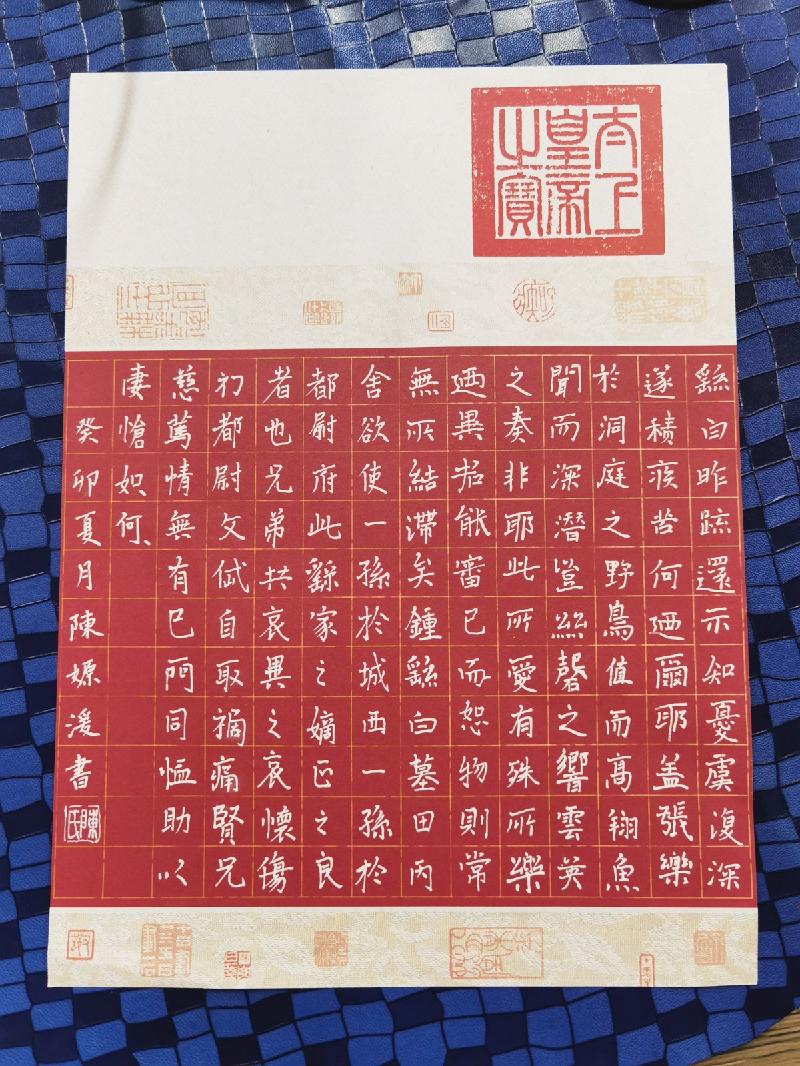 太上
皇帝
之寶
繇白昨疏還示知憂虞復深
遂積疾苦何迺爾耶盖張樂
於洞庭之野鳥值而高翔魚
聞而深潛豈絲磬之響雲英
之奏非耶此所愛有殊所樂
迺異君能審己而恕物則常
無所結滯矣鍾繇白墓田丙
舍欲使一孫於城西一孫於
都尉府此繇家之嫡正之良
者也兄弟共哀異之哀懷傷
切都尉文岱自取禍痛賢兄
慈篤情無有已門同恤助以
凄愴如何、
癸卯夏月陳嫄湲書
陳氏